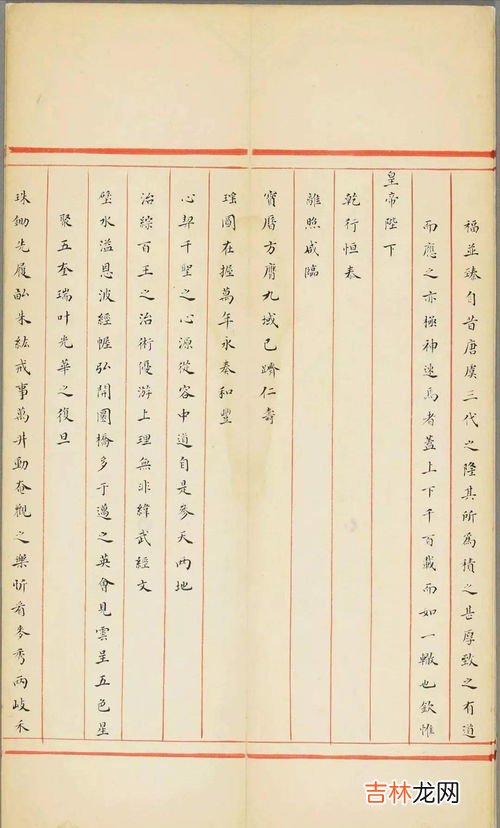 福並臻自昔唐虞三代之隆其所為積之甚厚致之有道
而應之亦極神速焉者蓋上下千百載而如一轍也欽惟
皇帝陛下
乾行恒泰
離照咸臨
寶曆方膺九域已躋仁壽
瑤圖在握萬年永奏和豐
心契千聖之心源從容中道自是參天兩地
治綜百王之治術優游上理無非緯武經文
璧水溢恩波經幄弘開圜橋多于邁之英會見雲呈五色星
聚五奎瑞叶光華之復旦
珠鋤先履畝朱紘戒事萬井動奄觀之樂忻看麥秀兩岐禾
吉林龙网